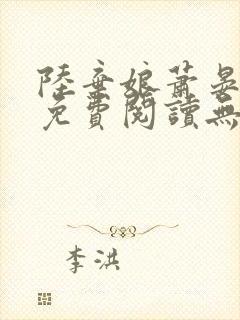 陸棄娘蕭晏
免費閱讀無
李洪